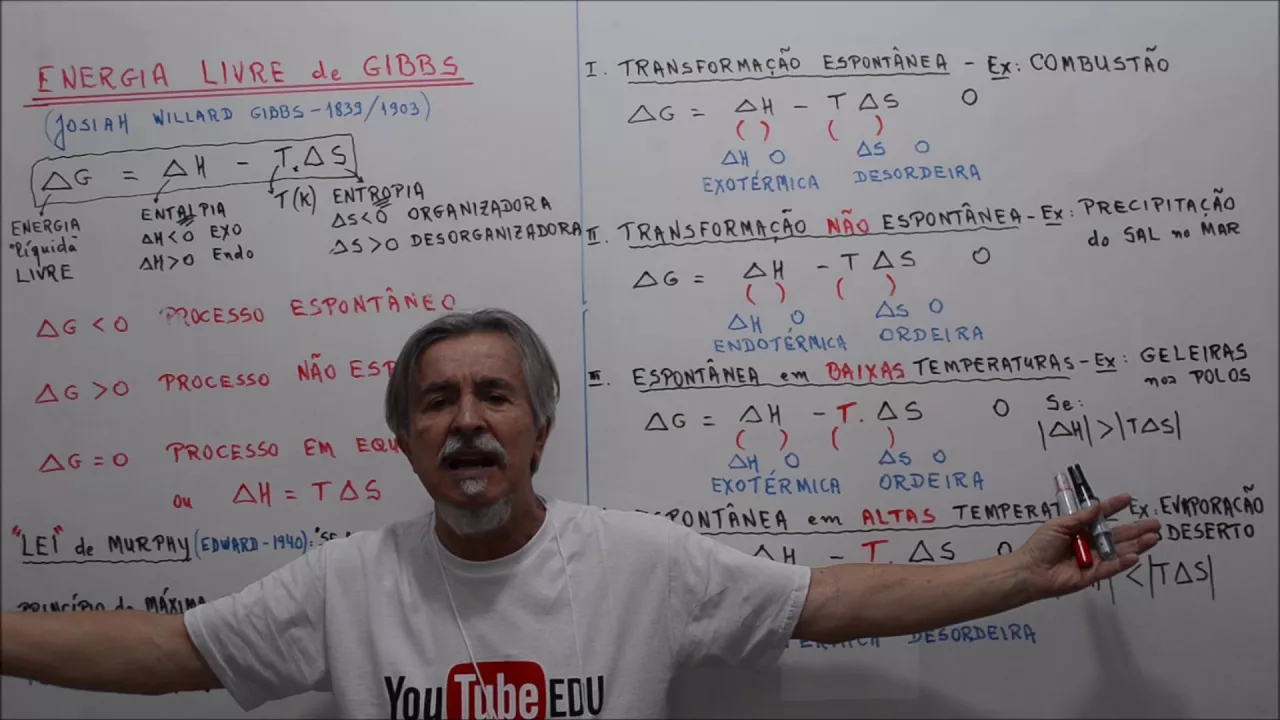 ENERGIA LIVRE de GIBBS
(JOSIAH WILLARD GIBBS - 1839/1903)
ΔG = ΔH - T.ΔS
ENERGIA
"líquida"
LIVRE
ENTALPIA
ΔH<0 EXO
ΔH>0 Endo
T(K) ENTROPIA
ΔS<0 ORGANIZADORA
ΔS>0 DESORGANIZADORA
ΔG<0 PROCESSO ESPONTÂNEO
ΔG>0 PROCESSO NÃO ESP
ΔG=0 PROCESSO EM EQU
ou ΔH = TΔS
"LEI" de MURPHY (EDWARD-1940): "SE
PRINCÍPIO da MÁXIMA
I. TRANSFORMAÇÃO ESPONTÂNEA - Ex: COMBUSTÃO
ΔG = ΔH - T ΔS 0
( ) ( )
ΔH 0 ΔS 0
EXOTÉRMICA DESORDEIRA
II. TRANSFORMAÇÃO NÃO ESPONTÂNEA - Ex: PRECIPITAÇÃO
do SAL no MAR
ΔG = ΔH - T ΔS 0
( ) ( )
ΔH 0 ΔS 0
ENDOTÉRMICA ORDEIRA
III. ESPONTÂNEA em BAIXAS TEMPERATURAS - Ex: GELEIRAS
nos POLOS
ΔG = ΔH - T. ΔS 0 Se:
|ΔH|>|TΔS|
( ) ( )
ΔH 0 ΔS 0
EXOTÉRMICA ORDEIRA
SPONTÂNEA em ALTAS TEMPERAT - Ex: EVAPORAÇÃO
DESERTO
ΔH - T. ΔS 0
<|TΔS|
DESORDEIRA
YouTube EDU